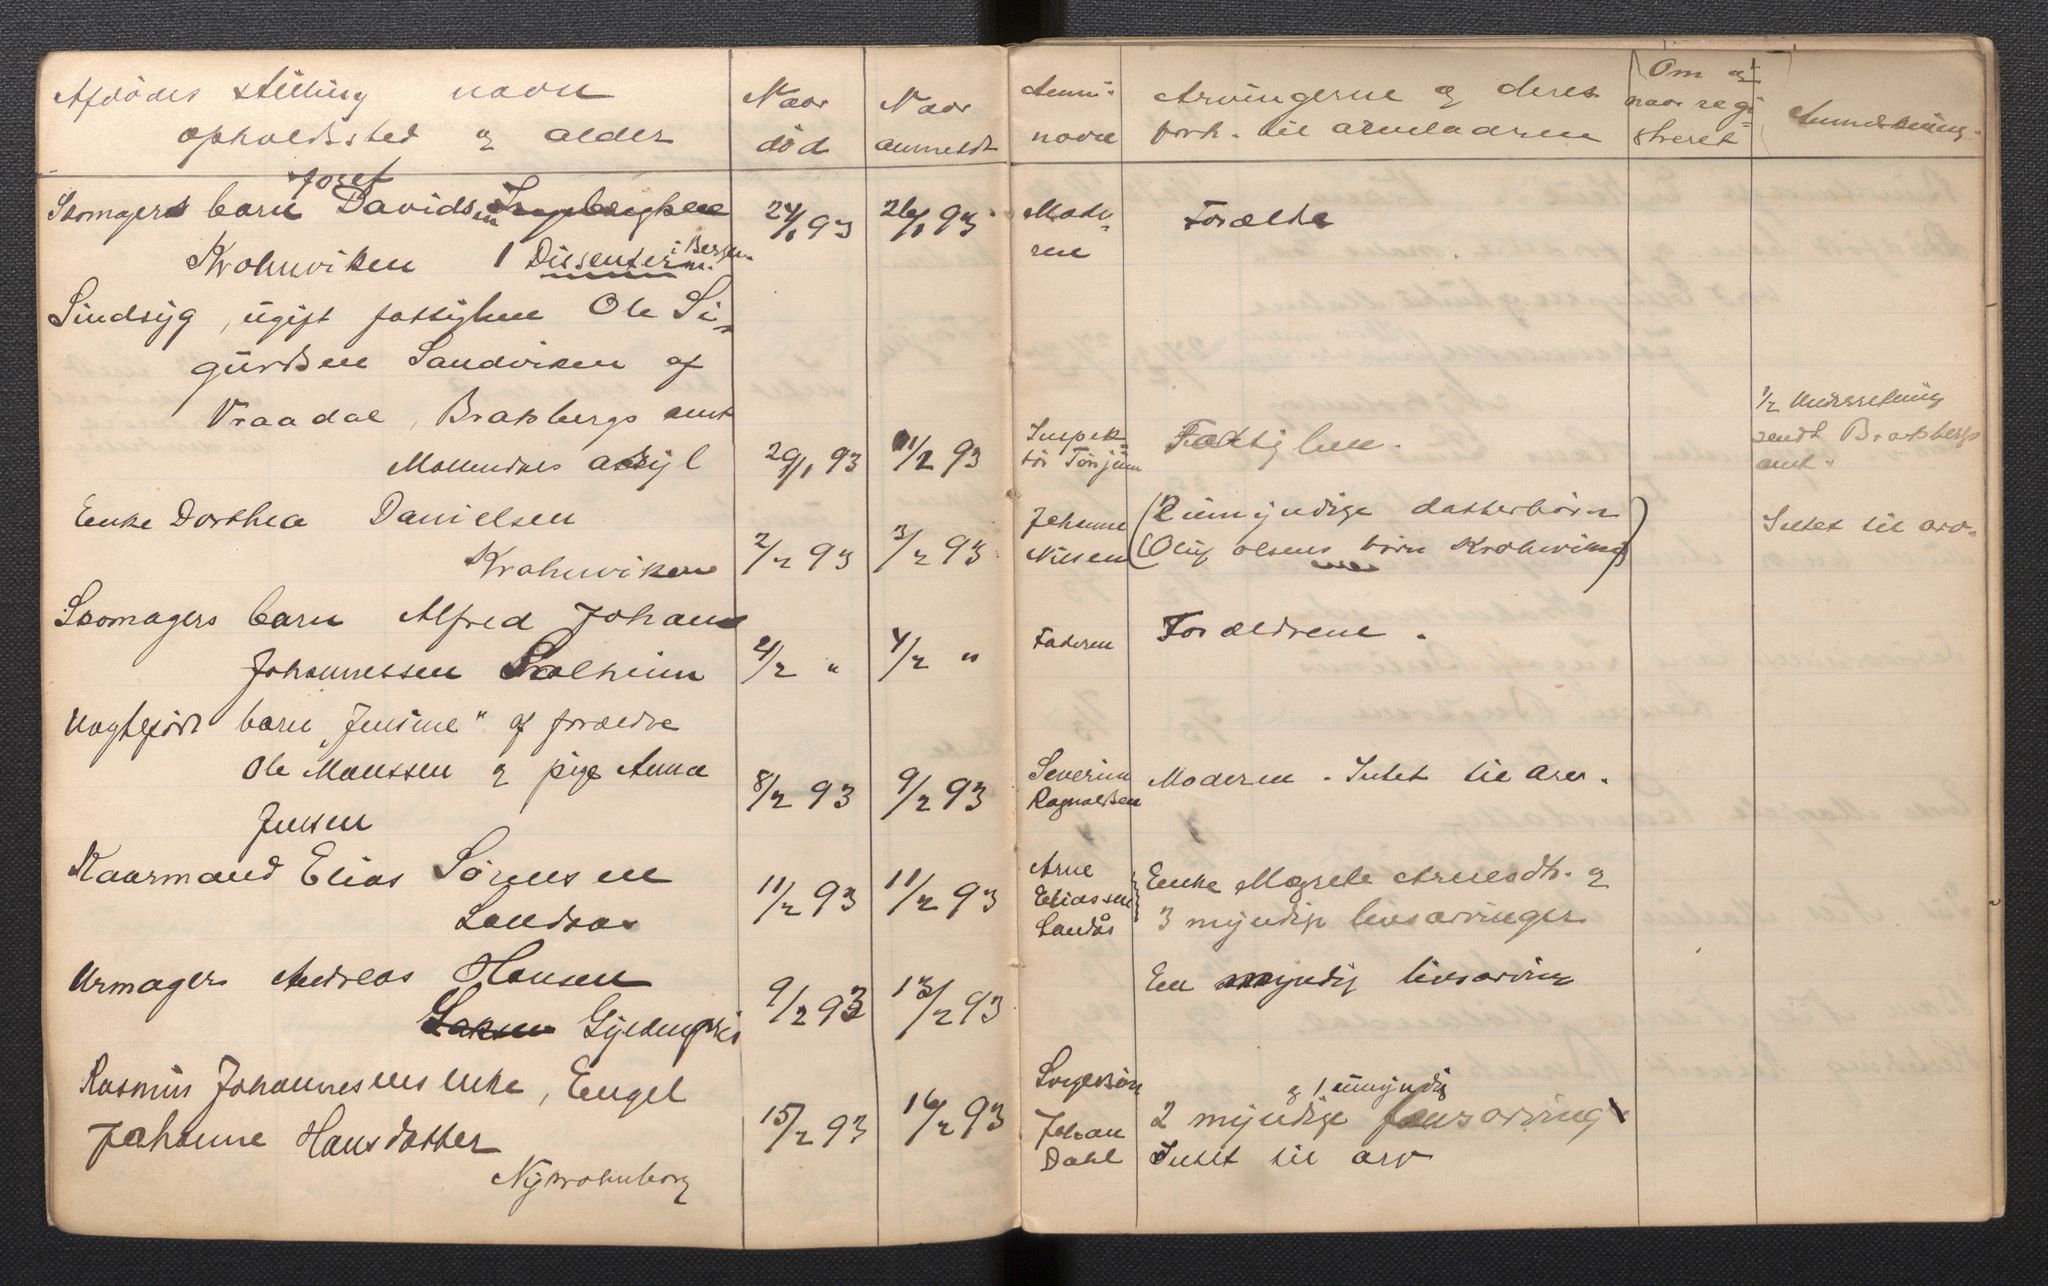 Afdødes stilling navn
opholdssted og alder
Naar
død
Naar
anmeldt
Anm.
navn
Arvingerne og deres
forh. til arveladeren
Om og
naar regi-
streret
Anmerkning.
Josef
Skomagers barn Davidsen
Krohnviken 1 Dissenter i Bergen
24/1 93
26/1 93
Mode-
ren
Forældre
Sindsyg, ugift fattiglem Ole Si-
gurdsen Sandviken af
Vraadal, Bratsbergs amt
Møllendals asyl
29/1 93
1/2 93
Inspek-
tør Torjum
Fattiglem.
1/2 Underretning
sendt Bratsbergs
amt.
Enke Dorthea Danielsen
Krohnviken
2/2 93
3/2 93
Johanne
Nilsen
(2 umyndige datterbørn
(Oluf Olsens børn Krohnviken)
Intet til arv.
Skomagers barn Alfred Johan
Johannessen Solheim
2/2 "
4/2 "
Faderen
Forældrene.
Uægtefødt barn "Jensine" af forældre
Ole Monssen og pige Anna
Jensen
8/2 93
9/2 93
Severin
Ragnvaldsen
Moderen. Intet til arv.
Kaarmand Elias Sørensen
Landaas
11/2 93
11/2 93
Arne
Eliassen
Landås
Enke Magrete Arnesdtr. og
3 myndige livsarvinger
Urmager Andreas Hansen
Gyldenpris
9/2 93
13/2 93
En myndig livsarving
Rasmus Johannesens enke, Engel
Johanne Hansdatter
Nykrohnborg
15/2 93
16/2 93
Svigersøn
Johan
Dahl
og 1 umyndig
2 myndige livsarving
Intet til arv